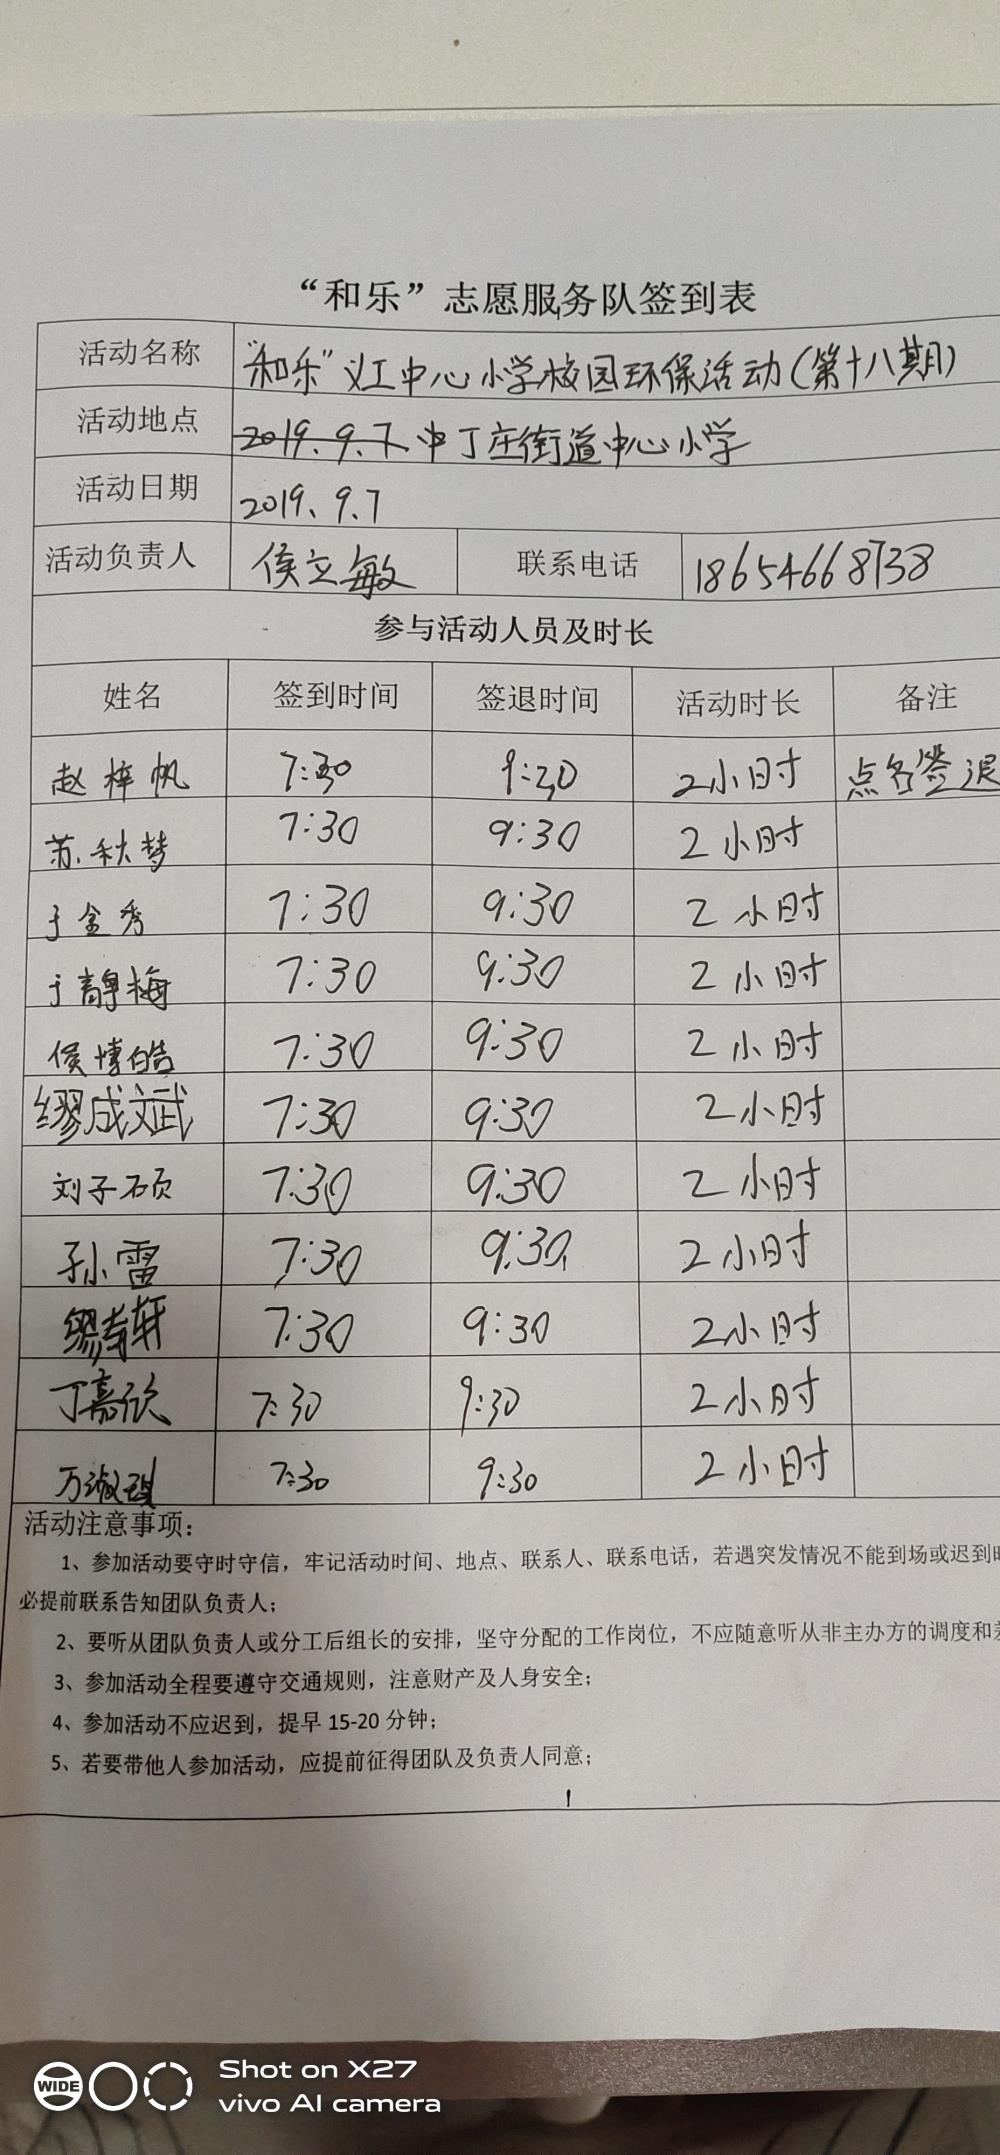 “和乐”志愿服务队签到表
活动名称 “和乐”义工中心小学校园环保活动(第十八期)
活动地点 2019.9.7. 中丁庄街道中心小学
活动日期 2019.9.7
活动负责人 侯立敏 联系电话 18654668738
参与活动人员及时长
姓名 签到时间 签退时间 活动时长 备注
赵梓帆 7:30 9:30 2小时 点名签退
苏秋梦 7:30 9:30 2小时
于金秀 7:30 9:30 2小时
于静梅 7:30 9:30 2小时
侯博皓 7:30 9:30 2小时
缪成文武 7:30 9:30 2小时
刘子硕 7:30 9:30 2小时
孙雷 7:30 9:30 2小时
7:30 9:30 2小时
丁嘉欣 7:30 9:30 2小时
万淑琪 7:30 9:30 2小时
活动注意事项:
1、参加活动要守时守信，牢记活动时间、地点、联系人、联系电话，若遇突发情况不能到场或迟到
必提前联系告知团队负责人；
2、要听从团队负责人或分工后组长的安排，坚守分配的工作岗位，不应随意听从非主办方的调度和
3、参加活动全程要遵守交通规则，注意财产及人身安全；
4、参加活动不应迟到，提早 15-20 分钟；
5、若要带他人参加活动，应提前征得团队及负责人同意；
WIDE
Shot on X27
vivo AI camera